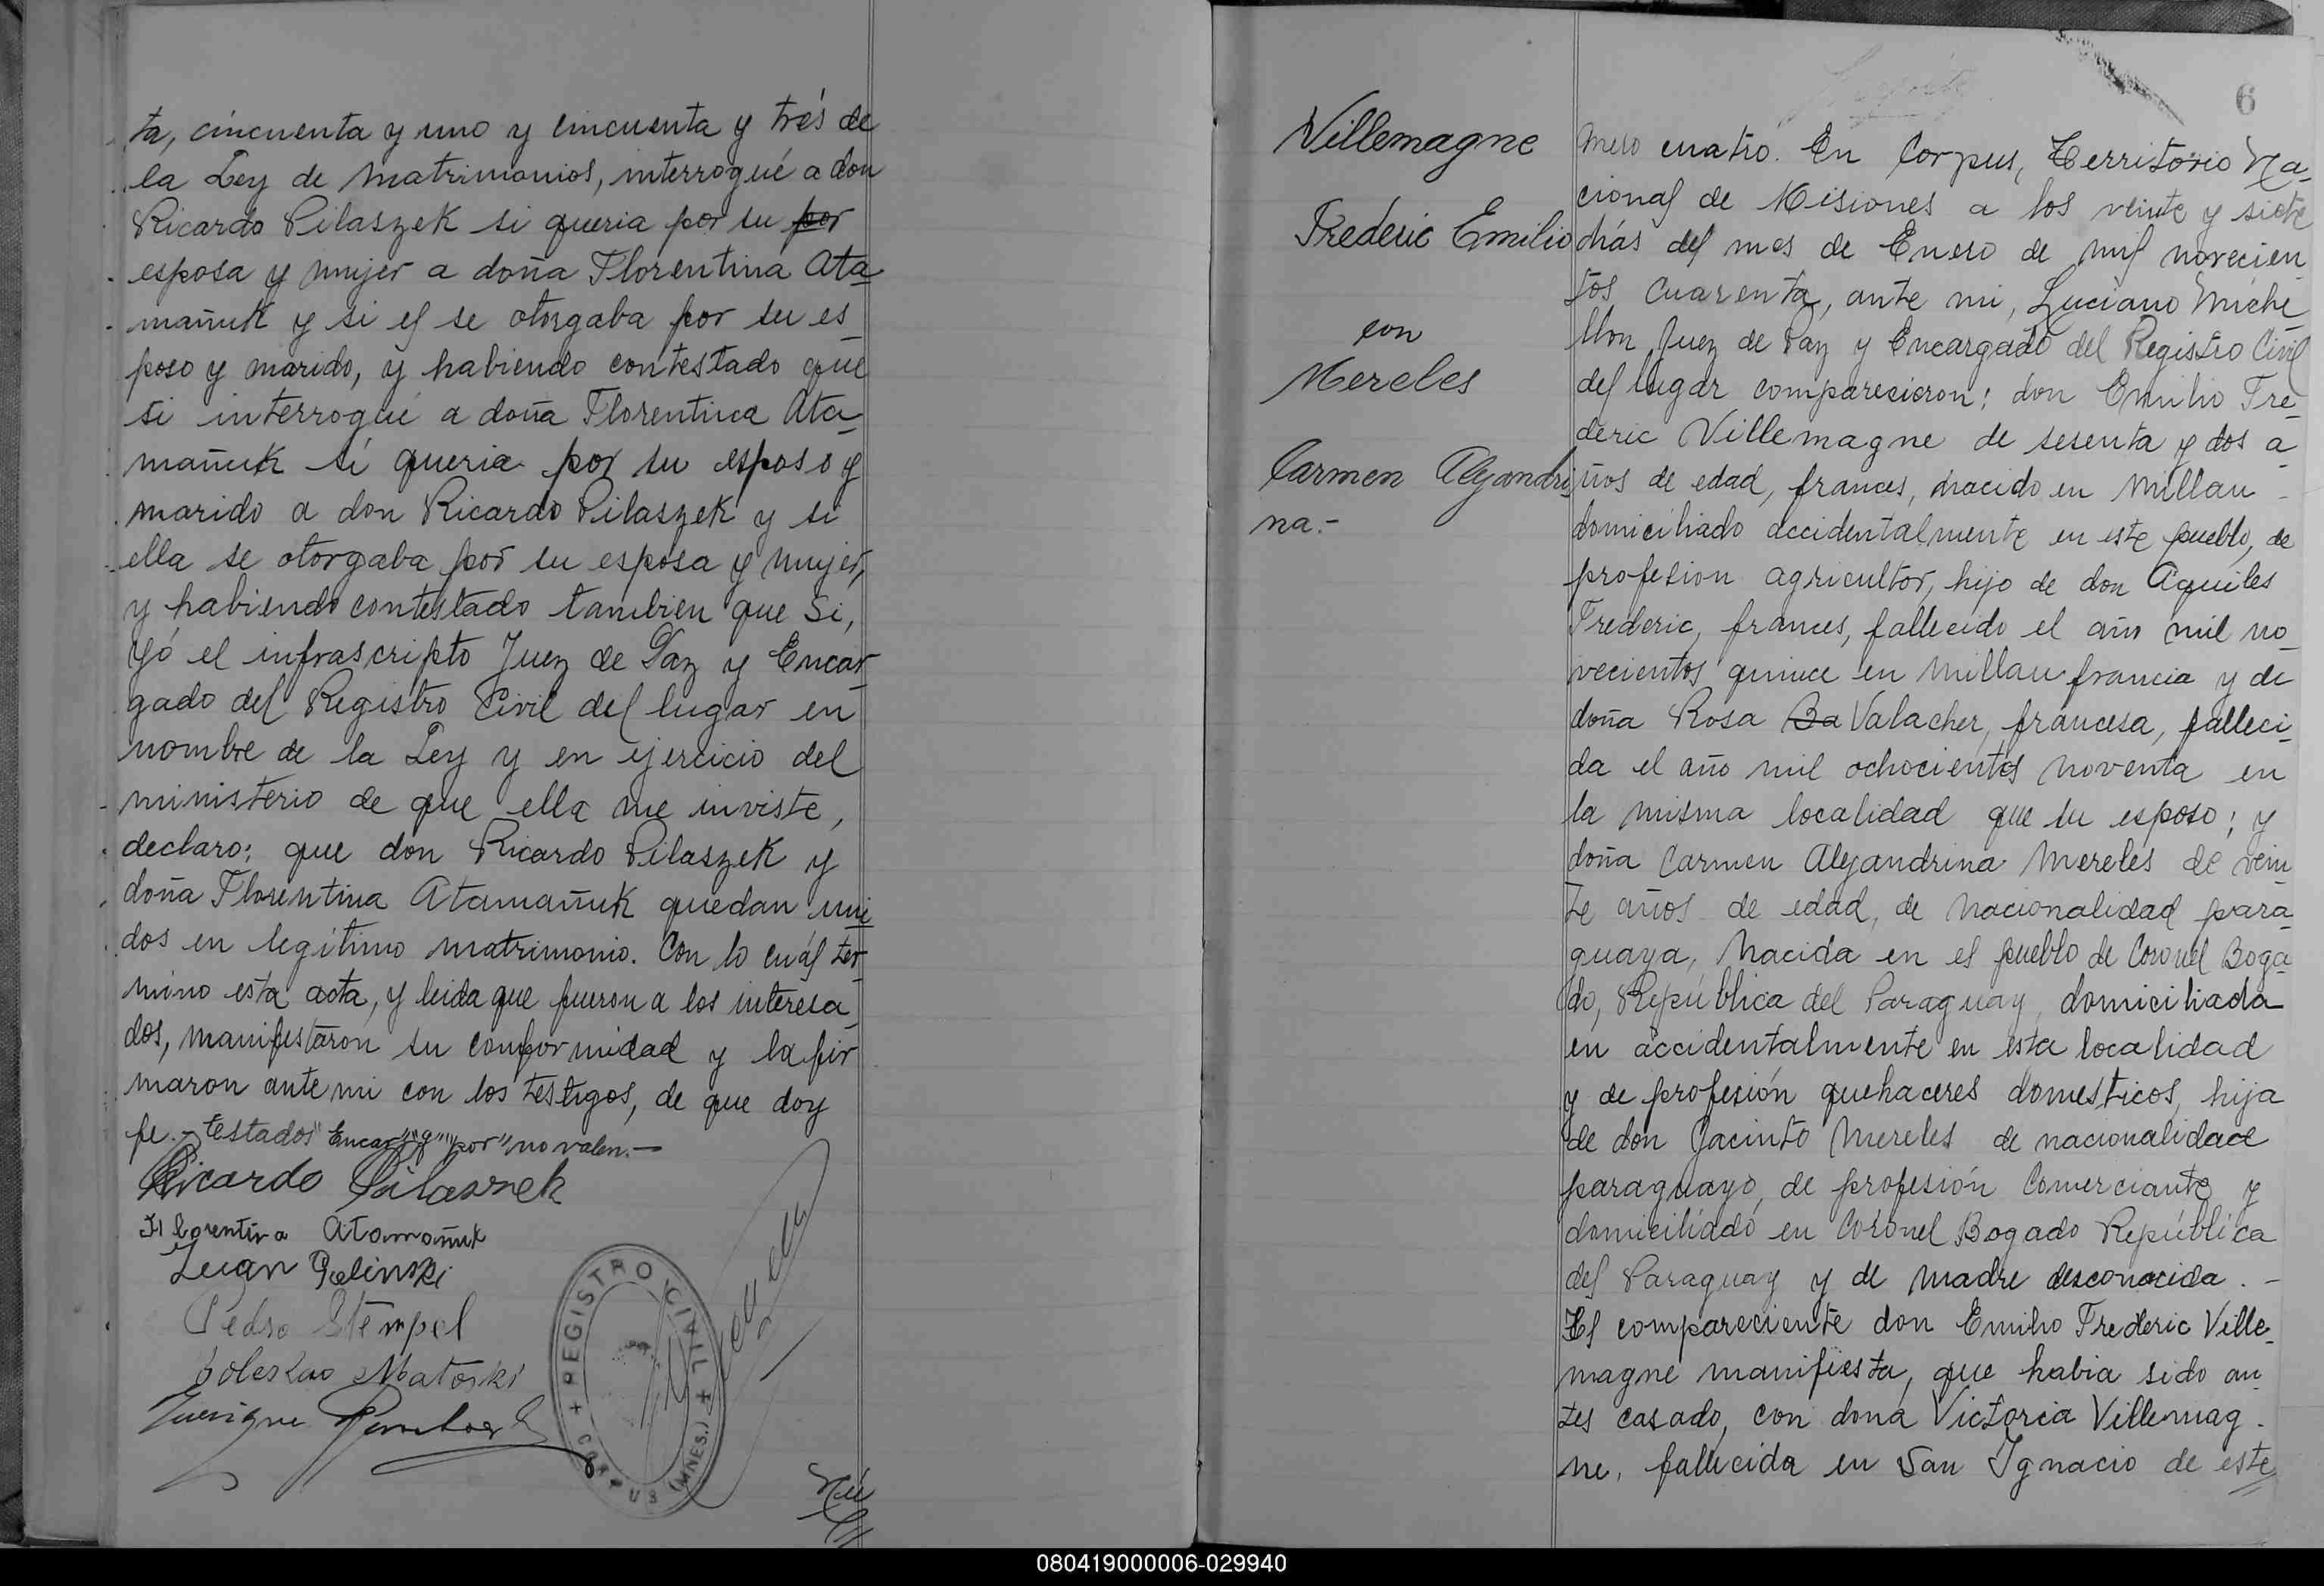 ta, cincuenta y uno y cincuenta y trés de
la Ley de Matrimonios, interrogué a don
Ricardo Pilaszek si queria por su por
esposa y mujer a doña Florentina Ata-
mañuk y si el se otorgaba por su es-
poso y marido, y habiendo contestado que
si interrogué a doña Florentina Ata-
mañuk si queria por su esposo y
marido a don Ricardo Pilaszek y si
ella se otorgaba por su esposa y mujer,
y habiendo contestado tambien que Si,
yó el infrascripto Juez de Paz y Encar-
gado del Registro Civil del lugar en
nombre de la Ley y en ejercicio del
ministerio de que ella me inviste,
declaro: que don Ricardo Pilaszek y
doña Florentina Atamañuk quedan uni
dos en legítimo matrimonio. Con lo cuál ter-
minó esta acta, y leida que fueron a los interesa-
dos, manifestaron su conformidad y la fir
maron ante mi con los testigos, de que doy
fe.- testados "Encarg" "g" "por" no valen.-
Ricardo Pilaszek
Florentina Atamañuk
Juan Palinski
Pedro Stempel
Boleslao Matoski
REGISTRO CIVIL
CORPUS (MNES.)
Nú
6
Villemagne
Frederic Emilio
con
Mereles
Carmen Alejandri
na.-
mero cuatro. En Corpus, Territorio Na-
cional de Misiones a los veinte y siete
días del mes de Enero de mil novecien-
tos cuarenta, ante mi, Luciano Miche-
llon Juez de Paz y Encargado del Registro Civil
del lugar comparecieron: don Emilio Fre-
deric Villemagne de sesenta y dos a-
ños de edad, frances, nacido en Millau -
domiciliado accidentalmente en este pueblo, de
profesion agricultor, hijo de don Aquiles
Frederic, frances, fallecido el año mil no-
vecientos quince en Millau francia y de
doña Rosa Ba Valacher, francesa, falleci-
da el año mil ochocientos noventa en
la misma localidad que su esposo; y
doña Carmen Alejandrina Mereles de vein-
te años de edad, de nacionalidad para-
guaya, nacida en el pueblo de Coronel Boga-
do, República del Paraguay, domiciliada
en accidentalmente en esta localidad
y de profesión quehaceres domesticos, hija
de don Jacinto Mereles de nacionalidad
paraguayo, de profesión Comerciante y
domiciliado en Coronel Bogado República
del Paraguay y de madre desconocida. -
El compareciente don Emilio Frederic Ville-
magne manifiesta, que habia sido an-
tes casado, con dona Victoria Villemag-
ne, fallecida en San Ignacio de este
080419000006-029940